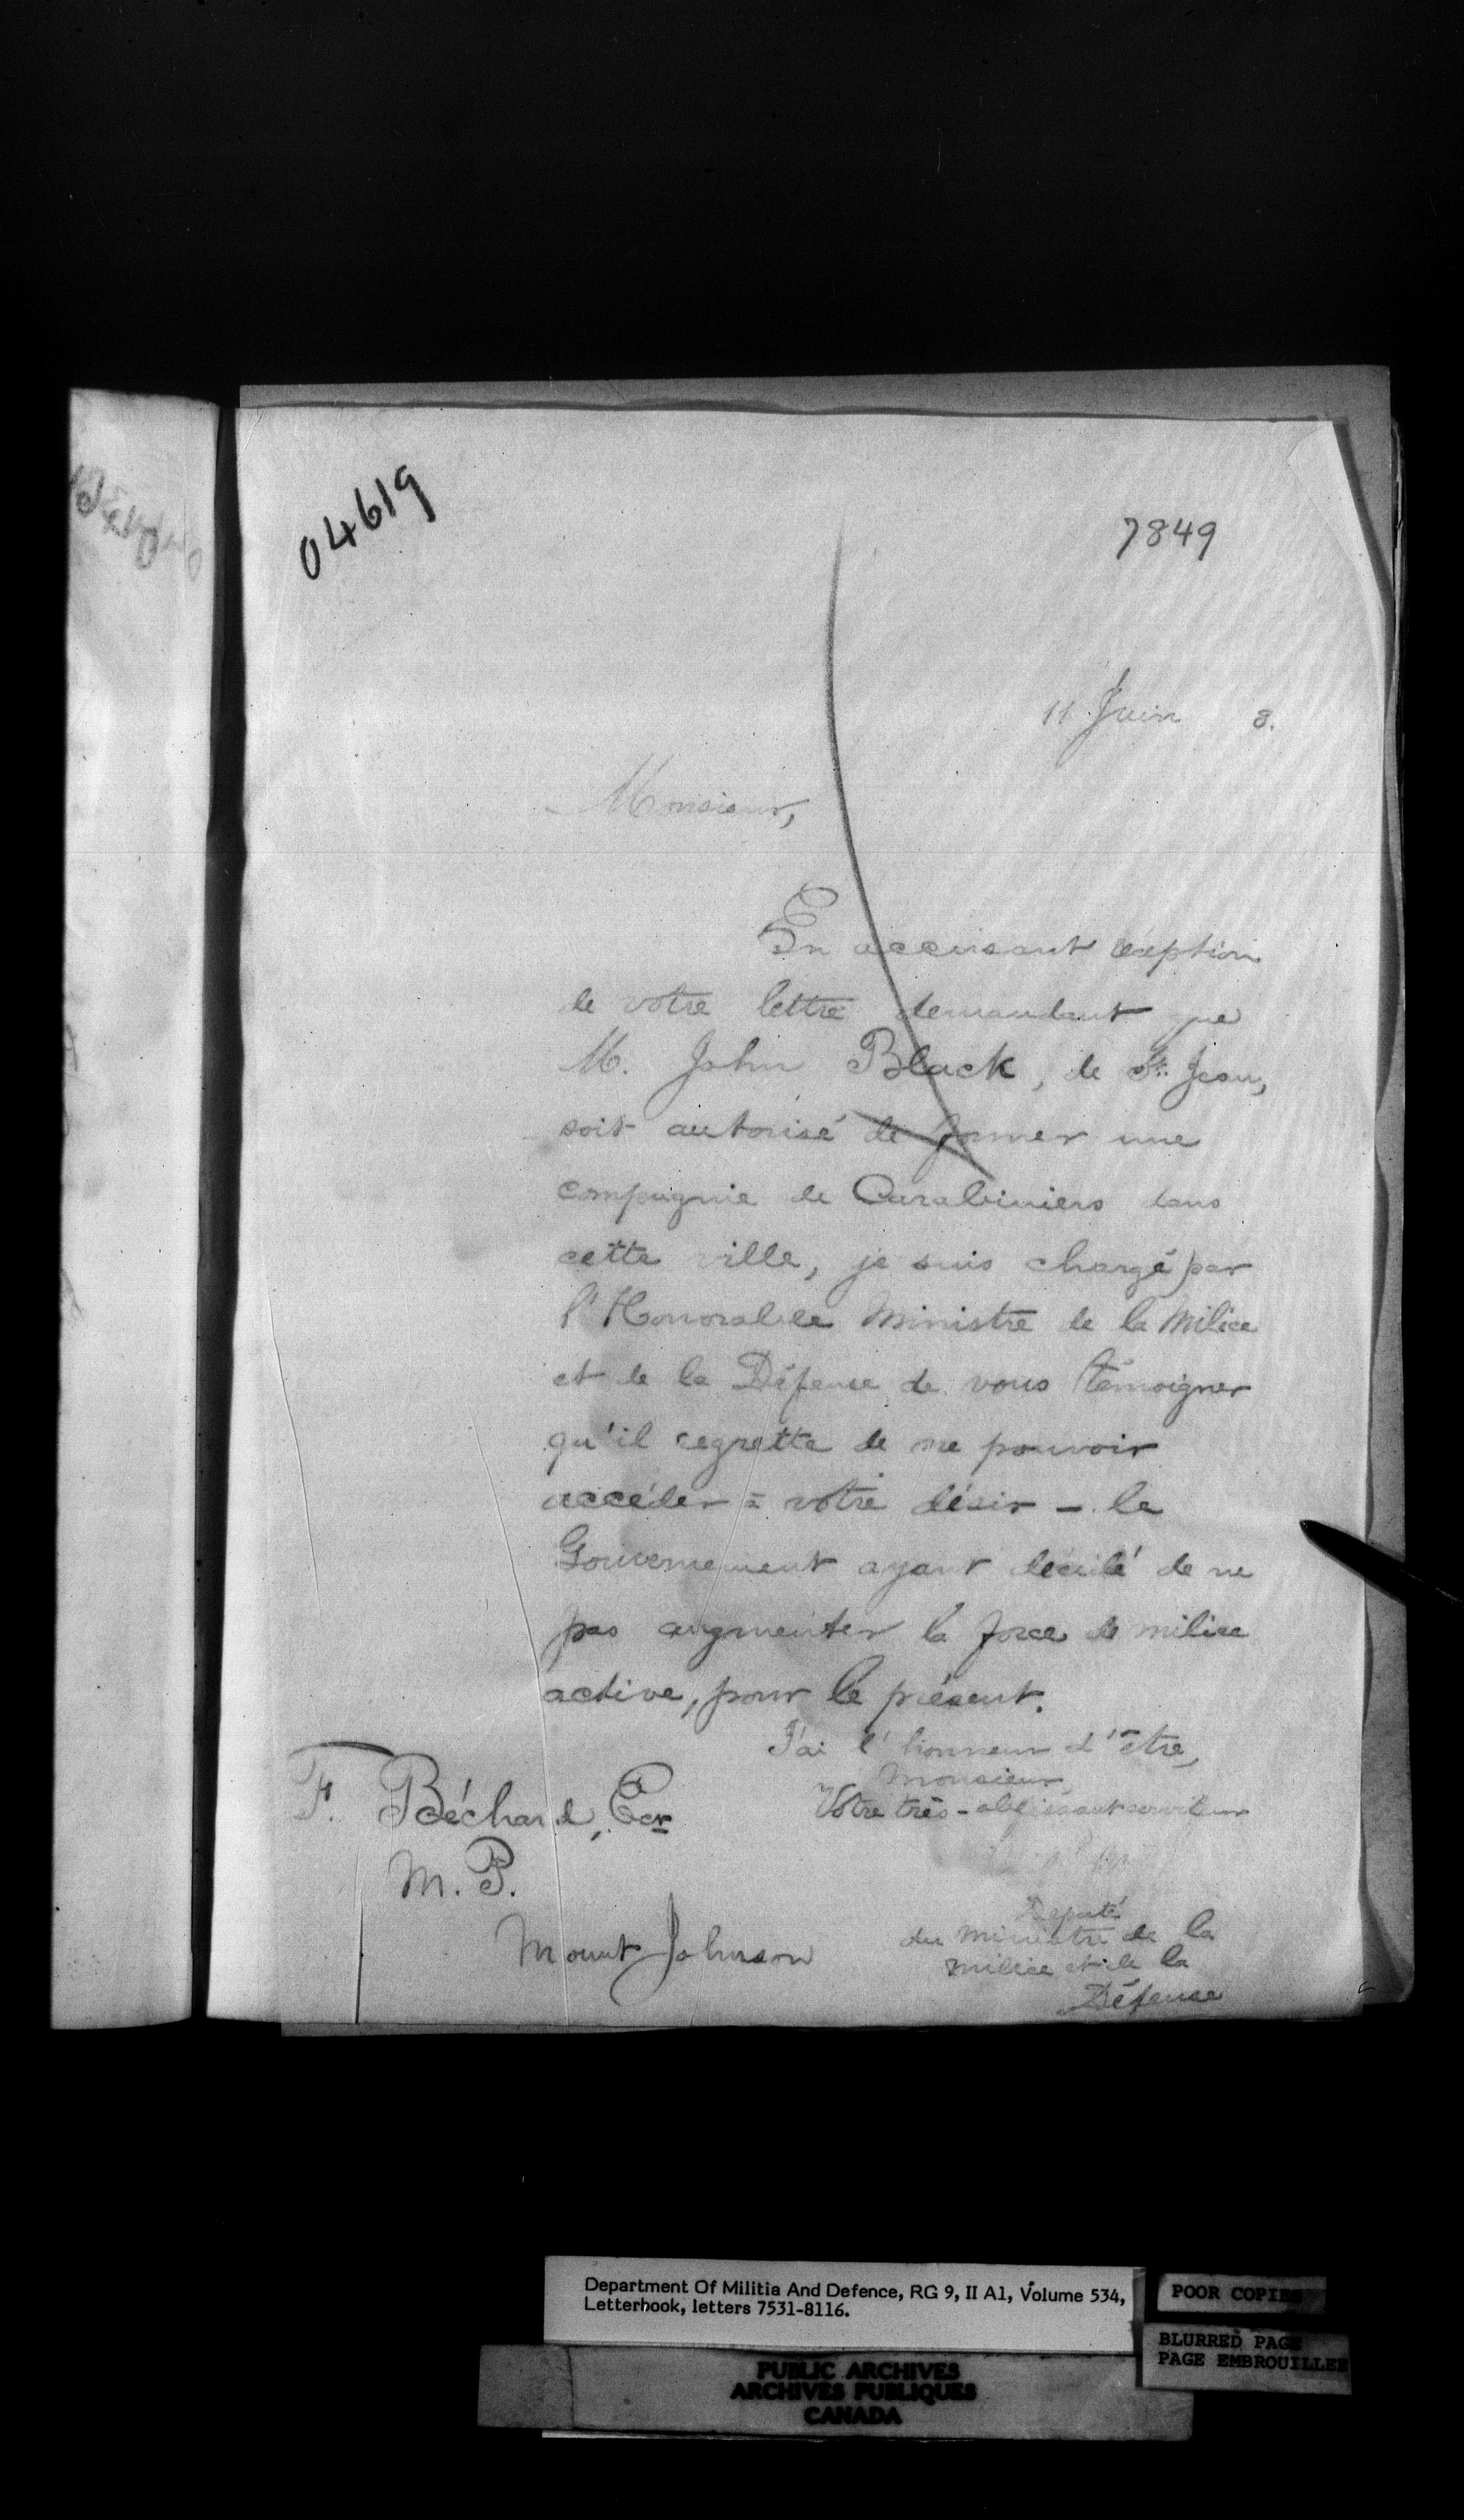 04619
7849
11 Juin 8.
Monsieur,
En accusant réception
de votre lettre demandant que
M. John Black, de St. Jean,
soit autorisé de former une
compagnie de Carabiniers dans
cette ville, je suis chargé par
l'Honorable Ministre de la Milice
et de la Défense de vous témoigner
qu'il regrette de ne pouvoir
accéder à votre désir - le
Gouvernement ayant décidé de ne
pas augmenter la force de milice
active, pour le présent.
J'ai l'honneur d'être,
Monsieur,
Votre très-obéissant serviteur
Député
du Ministre de la
Milice et de la
Défense
F. Béchard, Ecr
M.P.
Mount Johnson
Department Of Militia And Defence, RG 9, II A1, Volume 534,
Letterbook, letters 7531-8116.
POOR COPIES
BLURRED PAGE
PAGE EMBROUILLEE
PUBLIC ARCHIVES
ARCHIVES PUBLIQUES
CANADA